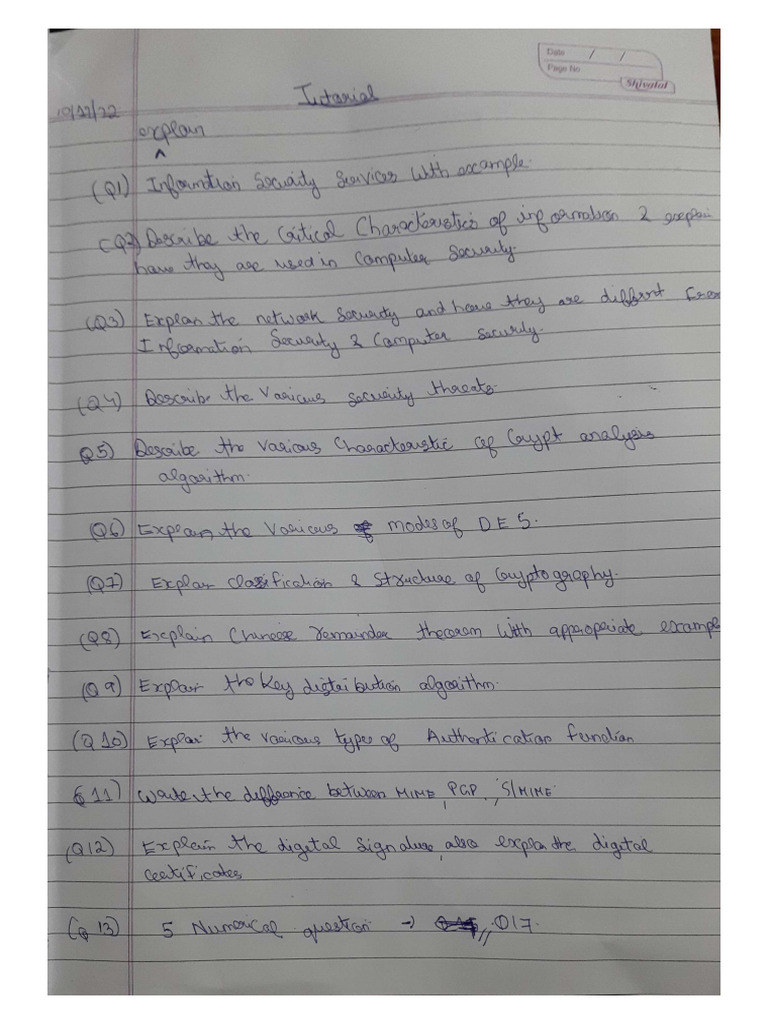 Date / /
Page No
Shivalal
Tutorial
explain
^
(Q1) Information Security Services with example.
(Q2) Describe the Critical Characteristics of information & explain
have they are used in Computer Security.
(Q3) Explan the network Security and have they are diffrent From
Information Security & Computer security.
(Q4) Describe the Various security threats.
Q5) Describe the various characteristic of Crypt analysis
algorithm.
(Q6) Explean the Various modes of DES.
(Q7) Explain classification & structure of Cryptography.
(Q8) Explain Chinese remainder theorem with appropriate example
(Q9) Explain the Key distribution algorithm.
(Q10) Explain the various types of Authentication function
Q11) Write the diffrence between MIME, PGP, S/MIME.
(Q12) Explain the digital Signature, also explan the digital
Certificates
(Q13) 5 Numerical question →